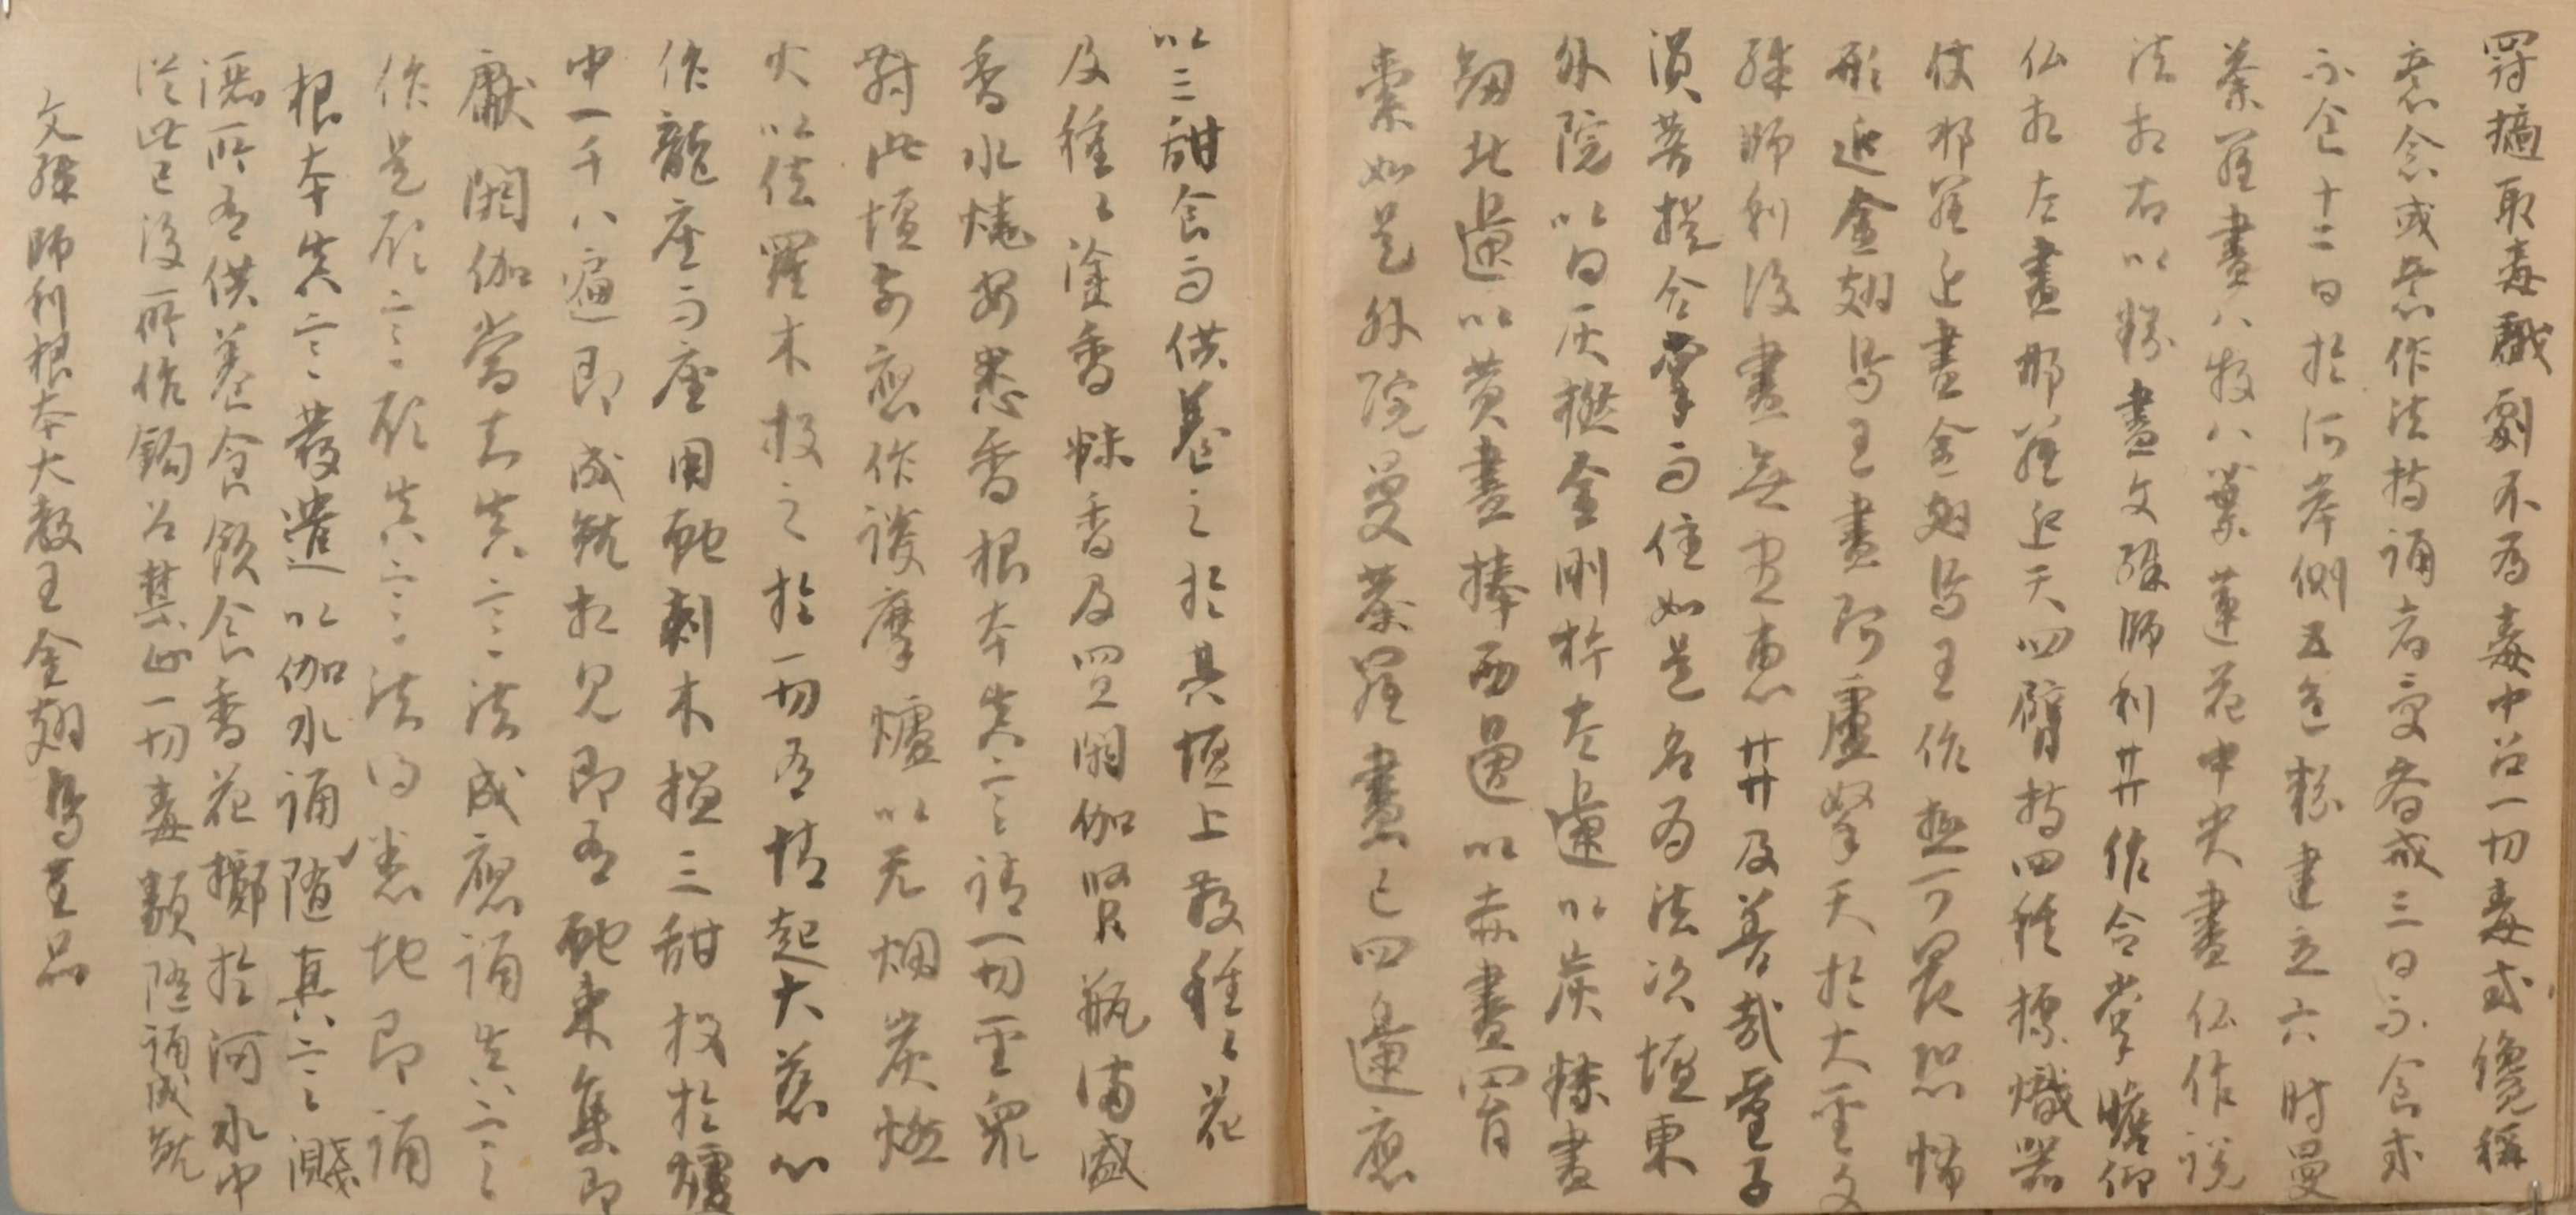 羂摘取毒戲劇不為毒中召一切毒或纔稱
意念或悉作法持誦者受斎戒三日不食或
不食十二日於河岸側五色粉建立六時曼
荼羅畫八枚八葉蓮花中央畫仏作説
法相右以粉畫文殊師利𦬇作合掌瞻仰
仏相左畫那羅延天四臂持四種摽幟器
仗那羅延畫金翅鳥王作極可畏恐怖
形近金翅鳥王畫阿盧拏天於大聖文
殊師利後畫無由恵𦬇及善哉童子
湏菩提合掌而住如是名為法次壇東
外院以白灰撚金剛杵左邊以炭粖畫
釼北邊以黄畫捧西邊以赤畫羂
索如是外院曼荼羅畫已四邊應
以三甜食而供養之於其壇上散種〻花
及種〻塗香粖香及置閼伽賢瓶満盛
香水燒安悉香根本真言請一切聖衆
對此壇前應作護摩爐以无烟炭燃
火以佉羅木投之於一切有情起大慈心
作龍座而座用虵刺木揾三甜投於爐
中一千八遍即成就相見即有虵来集即
獻閼伽當知真言法成應誦真言
作是願言願真言法得悉地即誦
根本真言發遣以伽水誦随真言濺
灑所有供養食飲食香花擲於河水中
従此已後所作鈎召禁止一切毒類随誦成就
文殊師利根本大教王金翅鳥王品